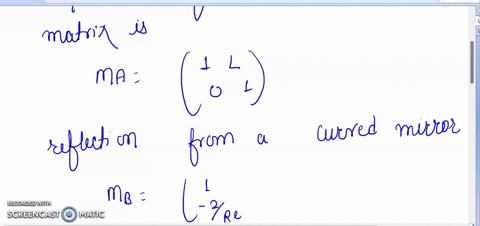 matrix is
MA = ( 1 L
0 1 )
reflection from a curved mirror
MB = ( 1
-2/Re
RECORDED WITH
SCREENCAST MATIC